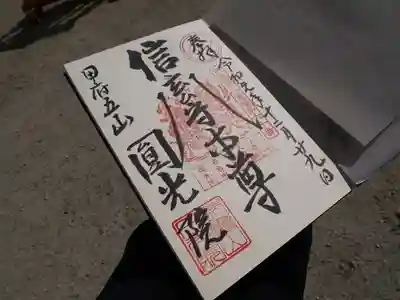 奉拝 令和元年十二月廿九日
信玄守り本尊
甲府五山 圓光院